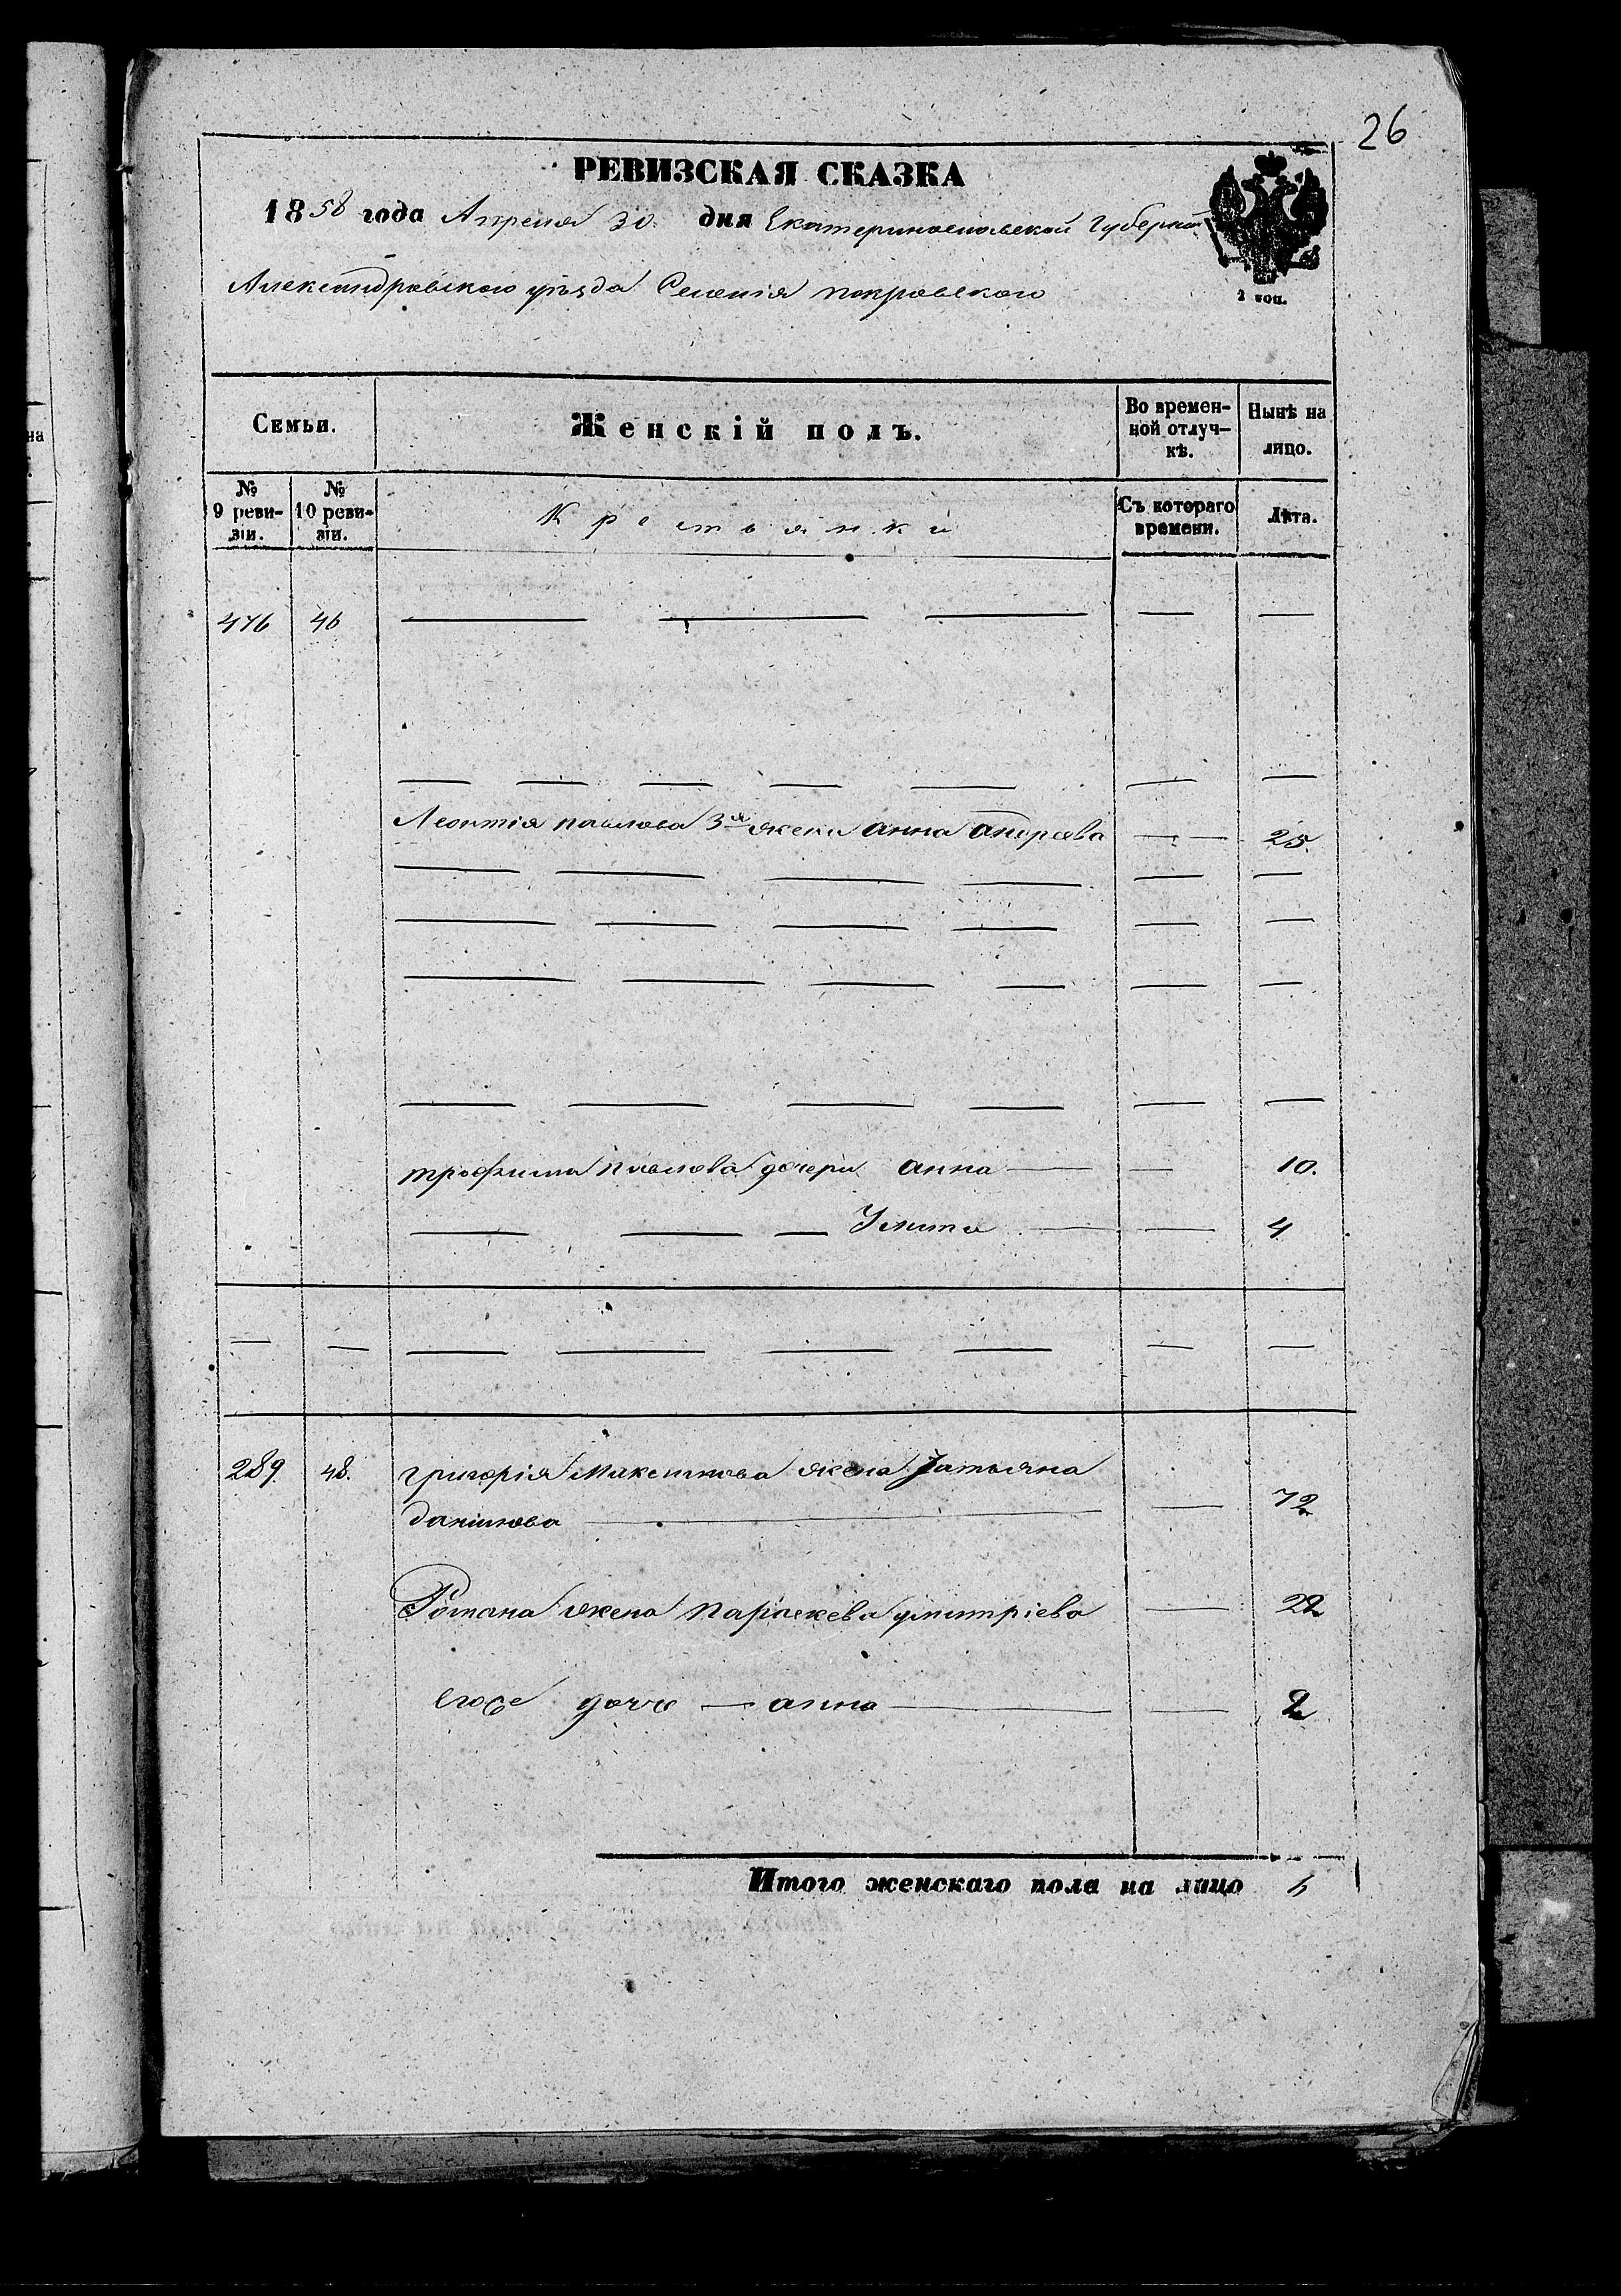 26
РЕВИЗСКАЯ СКАЗКА
1858 года Апреля 30. дня Екатеринославской Губерніи
Александровского уѣзда Селенія покровского
2 коп.
Семьи.
Женскій полъ.
Во времен-
ной отлуч-
кѣ.
Нынѣ на
лицо.
№
9 реви-
зіи.
№
10 реви-
зіи.
Крестьянки
Съ котораго
времени.
Лѣта.
476 46 — — — — —
— — — — — — —
Леонтія павлова 3я жена анна андреева — — 25.
— — — — — —
— — — — — —
— — — — — —
— — — — — —
трофима павлова дочери анна — — 10.
— — — Улита — — 4
— — — — — — — —
289. 48. григорія Максимова жена Татьяна
данилова — — 72
Романа жена параскева дмитріева — 22
егоже дочь — анна — — 2
Итого женскаго пола на лицо 6
на